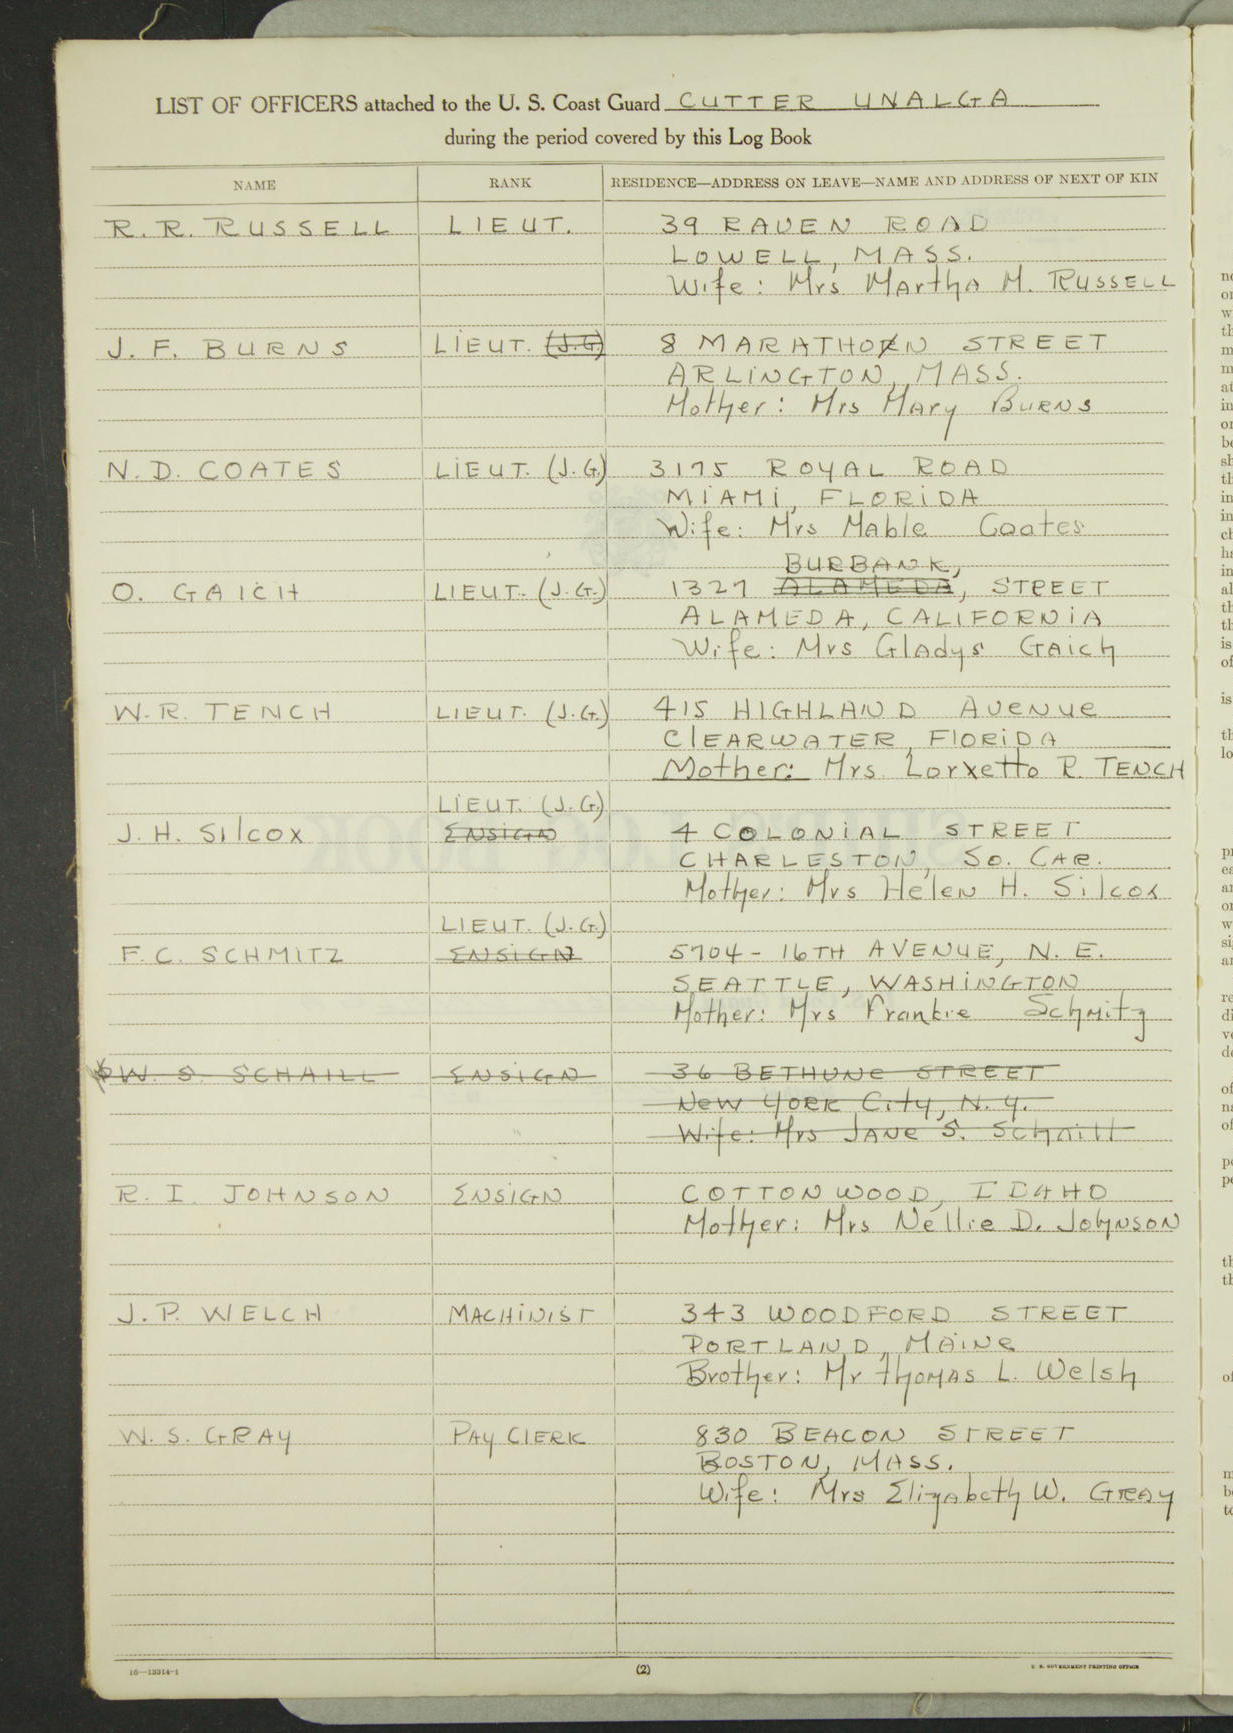 LIST OF OFFICERS attached to the U. S. Coast Guard CUTTER UNALGA
during the period covered by this Log Book
NAME RANK RESIDENCE—ADDRESS ON LEAVE—NAME AND ADDRESS OF NEXT OF KIN
R. R. RUSSELL LIEUT. 39 RAVEN ROAD
LOWELL, MASS.
Wife: Mrs Martha M. RUSSELL
J. F. BURNS LIEUT. (J.G) 8 MARATHON STREET
ARLINGTON, MASS.
Mother: Mrs Mary BURNS
N. D. COATES LIEUT. (J.G) 3175 ROYAL ROAD
MIAMI, FLORIDA
Wife: Mrs Mable Coates
BURBANK,
O. GAICH LIEUT. (J.G.) 1327 ALAMEDA, STREET
ALAMEDA, CALIFORNIA
Wife: Mrs Gladys GAICH
W. R. TENCH LIEUT. (J.G.) 415 HIGHLAND AVENUE
CLEARWATER, FLORIDA
Mother: Mrs. R. TENCH
LIEUT. (J.G.)
J. H. SILCOX ENSIGN 4 COLONIAL STREET
CHARLESTON, So. CAR.
Mother: Mrs Helen H. Silcox
LIEUT. (J.G.)
F. C. SCHMITZ ENSIGN 5704 - 16TH AVENUE, N. E.
SEATTLE, WASHINGTON
Mother: Mrs Frankie Schmitz
W. S. SCHAILL ENSIGN 36 BETHUNE STREET
NEW YORK City, N. Y.
Wife: Mrs JANE S. Schaill
R. I. JOHNSON ENSIGN COTTONWOOD, IDAHO
Mother: Mrs Nellie D. JOHNSON
J. P. WELCH MACHINIST 343 WOODFORD STREET
PORTLAND, MAINE
Brother: Mr THOMAS L. Welsh
W. S. GRAY PAY CLERK 830 BEACON STREET
BOSTON, MASS.
Wife: Mrs Elizabeth W. GRAY
16—13314-1 (2) U. S. GOVERNMENT PRINTING OFFICE